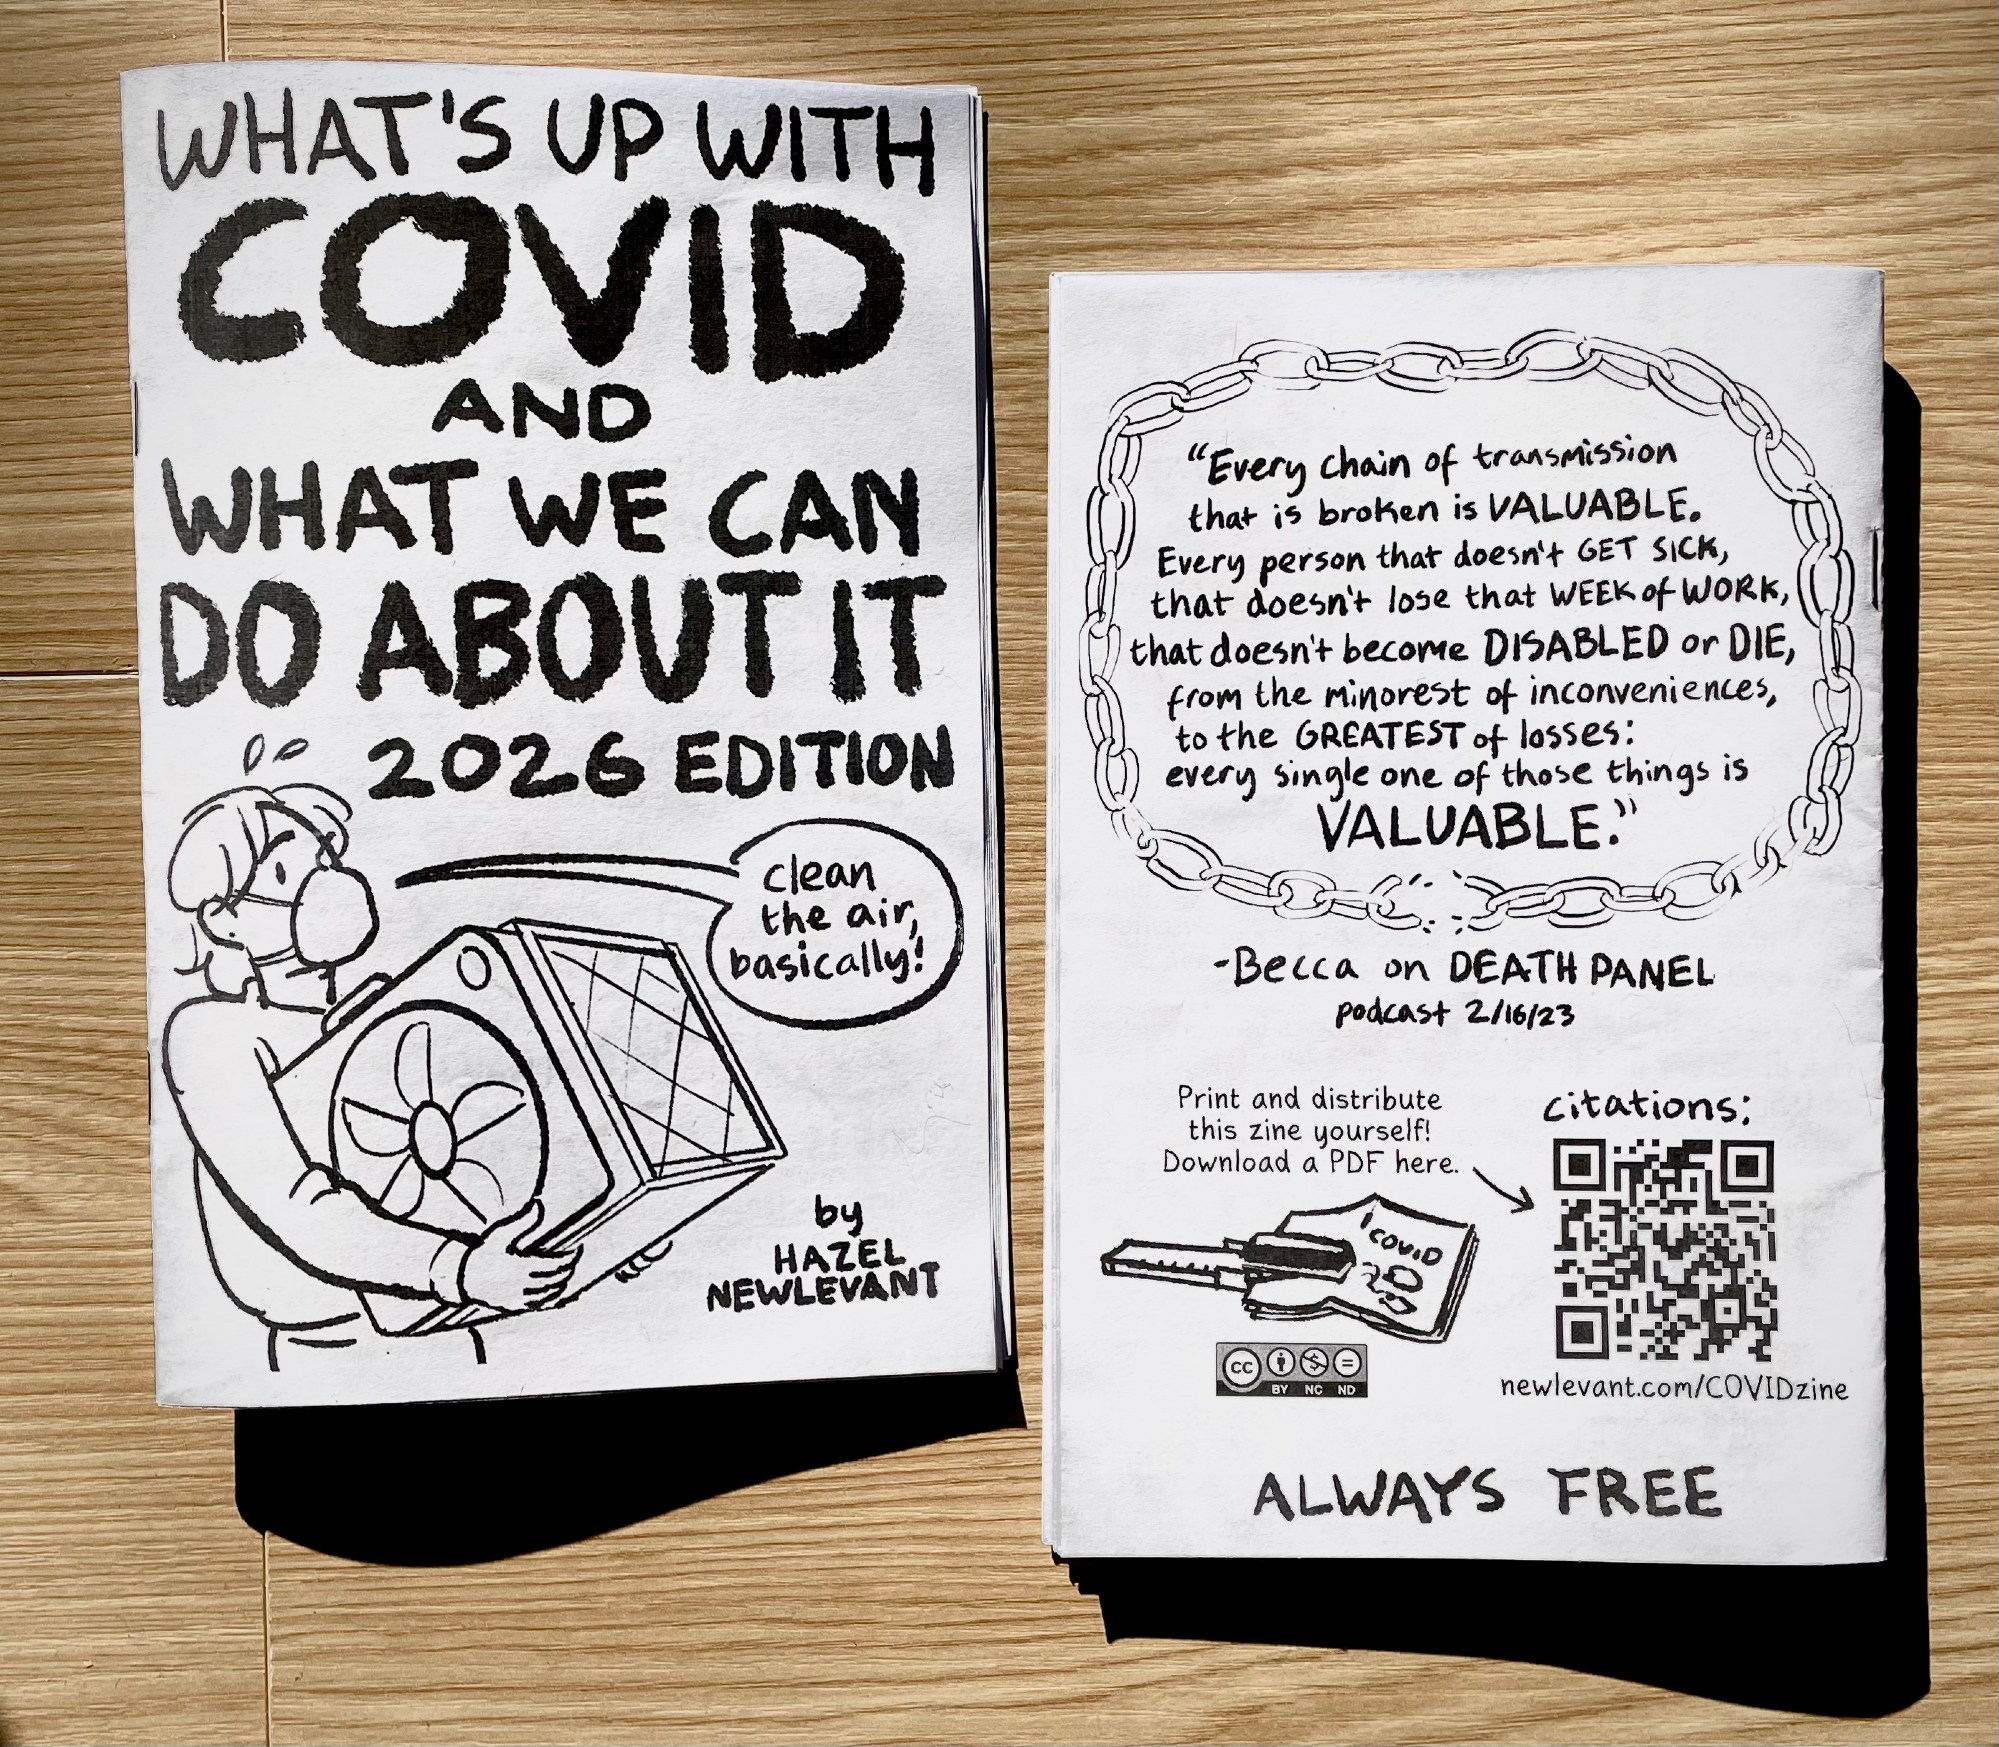 WHAT'S UP WITH
COVID
AND
WHAT WE CAN
DO ABOUT IT
2026 EDITION
clean
the air,
basically!
by
HAZEL
NEWLEVANT
"Every chain of transmission
that is broken is VALUABLE.
Every person that doesn't GET SICK,
that doesn't lose that WEEK of WORK,
that doesn't become DISABLED or DIE,
from the minorest of inconveniences,
to the GREATEST of losses:
every single one of those things is
VALUABLE."
-Becca on DEATH PANEL
podcast 2/16/23
Print and distribute
this zine yourself!
Download a PDF here.
citations:
COVID
cc
BY NC ND
newlevant.com/COVIDzine
ALWAYS FREE